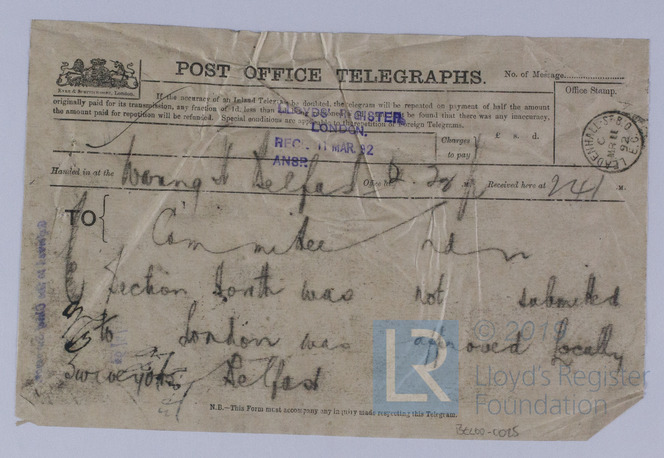 POST OFFICE TELEGRAPHS.
No. of Message
Office Stamp.
If the accuracy of an Inland Telegram be doubted, the telegram will be repeated on payment of half the amount
originally paid for its transmission, any fraction of 1d. less than
be found that there was any inaccuracy,
the amount paid for repetition will be refunded. Special conditions are applicable to the repetition of Foreign Telegrams.
LLOYD'S REGISTER
LONDON.
REC. 11 MAR. 92
ANSR.
£ s. d.
Charges
to pay
LEADENHALL ST B.O E.C
MR 11
92
Handed in at the
Belfast
Office at
Received here at
241
M.
TO
Committee
Section Sorth was not submitted
to London was approved locally
Surveyors Belfast
N.B.—This Form must accompany any inquiry made respecting this Telegram.
LR
© 2019
Lloyd's Register
Foundation